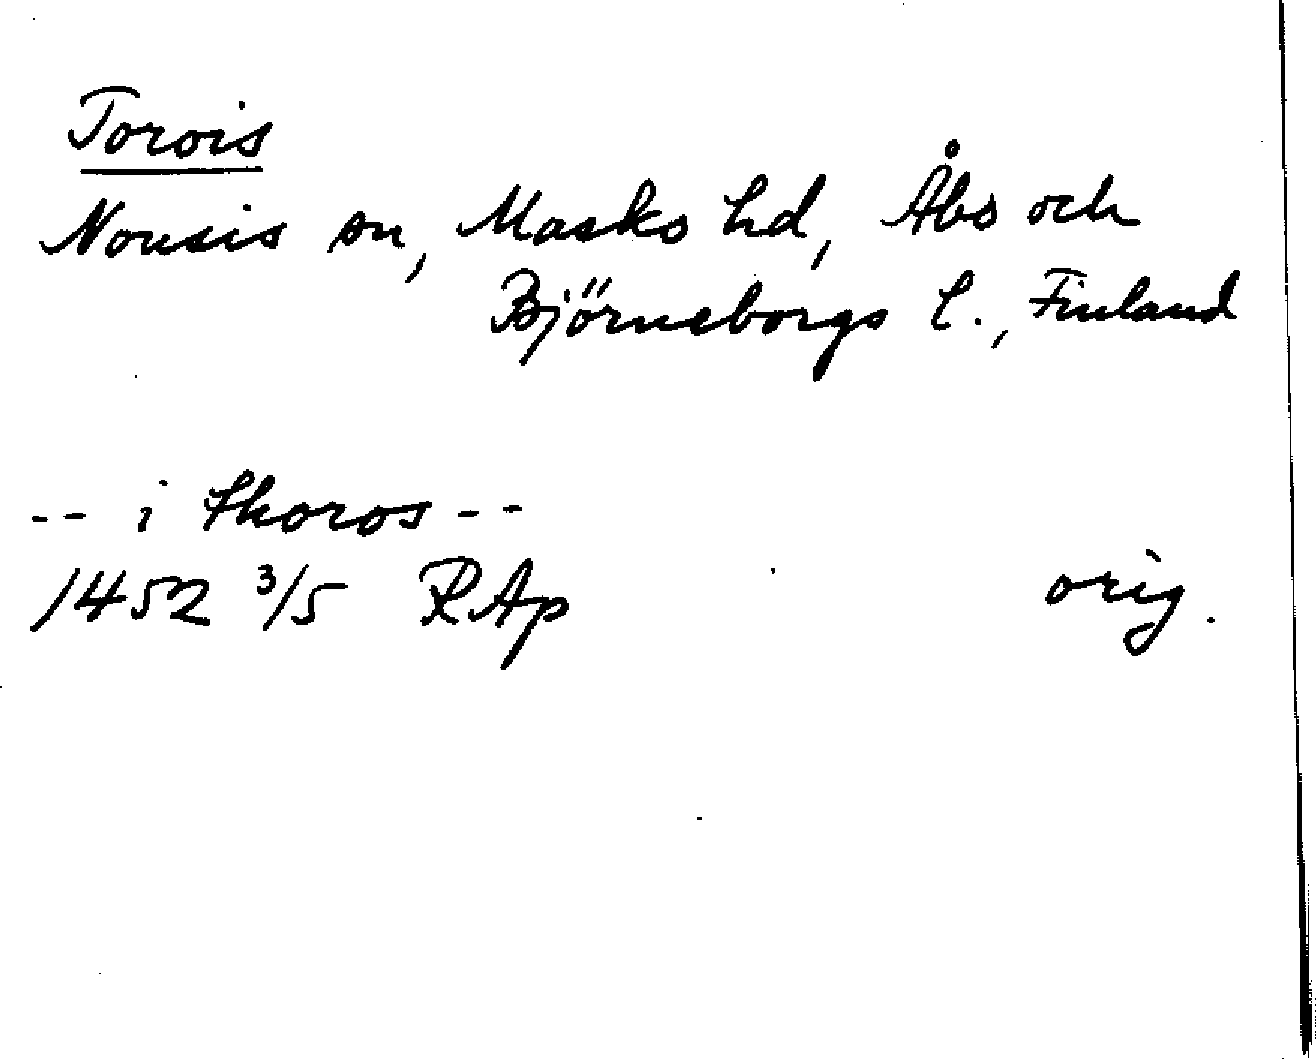 Torois
Nousis sn, Masko hd, Åbo och
Björneborgs l., Finland
-- i thoros --
1452 3/5 RAp orig.